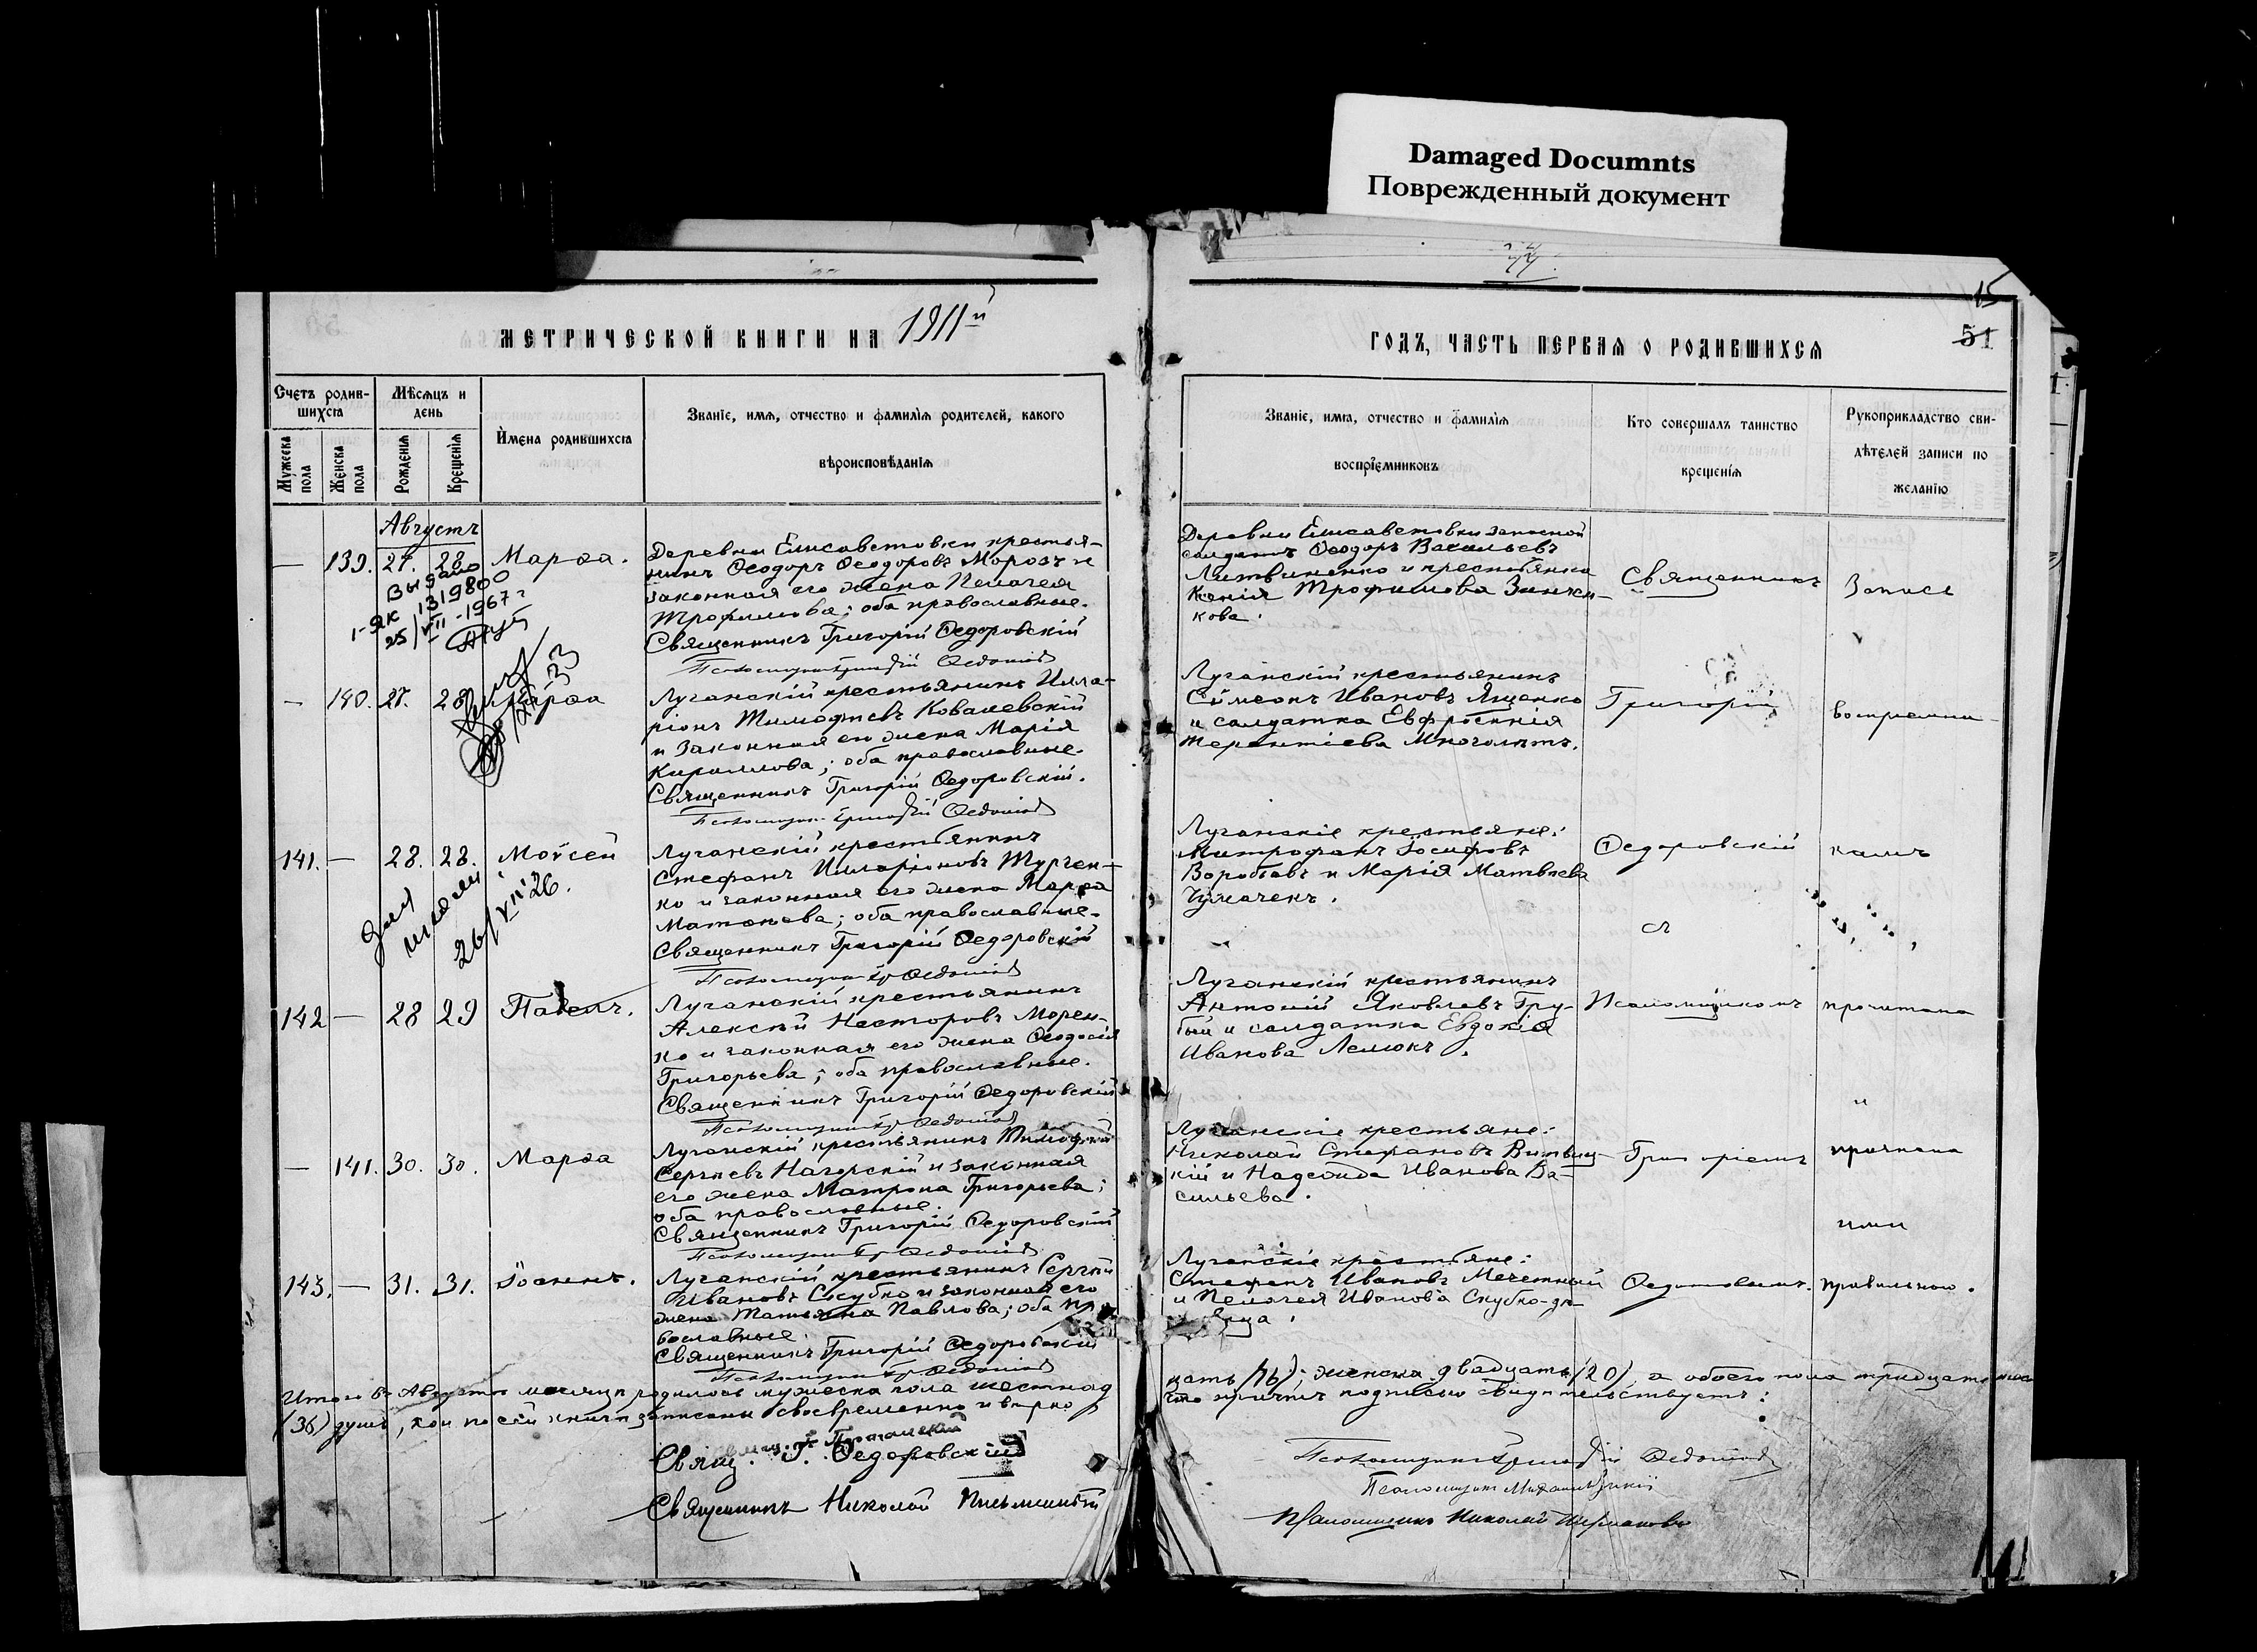 Damaged Documnts
Поврежденный документ
15
51
МЕТРИЧЕСКОЙ КНИГИ НА 1911й
ГОДЪ, ЧАСТЬ ПЕРВАЯ О РОДИВШИХСЯ
Счетъ родив-
шихся
Мѣсяцъ и
день
Мужеска
пола
Женска
пола
Рожденія
Крещенія
Имена родившихся
Званіе, имя, отчество и фамилія родителей, какого
вѣроисповѣданія
Званіе, имя, отчество и фамилія
воспріемниковъ
Кто совершалъ таинство
крещенія
Рукоприкладство сви-
дѣтелей записи по
желанію
Августъ
— 139. 27. 28. Марѳа.
Выдано
1-ЯК 131980
25/VII-1967г
Деревни Елисаветовки крестья-
нинъ Ѳеодоръ Ѳеодоровъ Морозъ и
законная его жена Пелагея
Трофимова; оба православные.
Священникъ Григорій Ѳедоровскій
Деревни Елисаветовки запасной
солдатъ Ѳеодоръ Васильевъ
Литвиненко и крестьянка
Ксенія Трофимова Зинчен-
кова.
— 140. 27. 28. Марѳа
Луганскій крестьянинъ Илла-
ріонъ Тимофѣевъ Ковалевскій
и законная его жена Марія
Кириллова; оба православные.
Священникъ Григорій Ѳедоровскій.
Луганскій крестьянинъ
Сѵмеонъ Ивановъ Ященко
и солдатка Евфросинія
Терентіева Многолѣтъ.
141. — 28. 28. Моѵсей
для
школы
26/VII 26.
Луганскій крестьянинъ
Стефанъ Илларіоновъ Турчен-
ко и законная его жена Марѳа
Матѳеева; оба православные.
Священникъ Григорій Ѳедоровскій
Луганскіе крестьяне:
Митрофанъ Іосифовъ
Воробьевъ и Марія Матвѣева
Чумаченъ.
142 — 28 29 Павелъ.
Луганскій крестьянинъ
Алексѣй Несторовъ Морен-
ко и законная его жена Ѳеодосія
Григорьева; оба православные.
Священникъ Григорій Ѳедоровскій
Луганскій крестьянинъ
Антоній Яковлевъ Гру-
бый и солдатка Евдокія
Иванова Лемюкъ.
— 141. 30. 30. Марѳа
Луганскій крестьянинъ Тимофей
Сергѣевъ Нагорскій и законная
его жена Матрона Григорьева;
оба православные.
Священникъ Григорій Ѳедоровскій
Луганскіе крестьяне:
Николай Стефановъ Витвиц-
кій и Надежда Иванова Ва-
сильева.
143. — 31. 31. Іоаннъ.
Луганскій крестьянинъ Сергѣй
Ивановъ Скубко и законная его
жена Татьяна Павлова; оба пра-
вославные.
Священникъ Григорій Ѳедоровскій
Луганскіе крестьяне:
Стефанъ Ивановъ Мечетный
и Пелагея Иванова Скубко-дѣ-
вица.
Священникъ
Григорій
Ѳедоровскій
съ
Псаломщикомъ
Григоріемъ
Ѳедотовымъ.
Запись
воспріемни-
камъ
прочитана
и
признана
ими
правильною.
Итого въ Августѣ мѣсяцѣ родилось мужеска пола шестнад
цать (16); женска двадцать (20), а обоего пола тридцать шесть
(36) душъ, кои по сей книгѣ записаны своевременно и вѣрно
что причтъ подписью свидѣтельствуетъ:
Свящ. Г. Ѳедоровскій
Священникъ Николай
Псаломщикъ Григорій Ѳедотовъ
Псаломщикъ Михаилъ
Псаломщикъ Николай